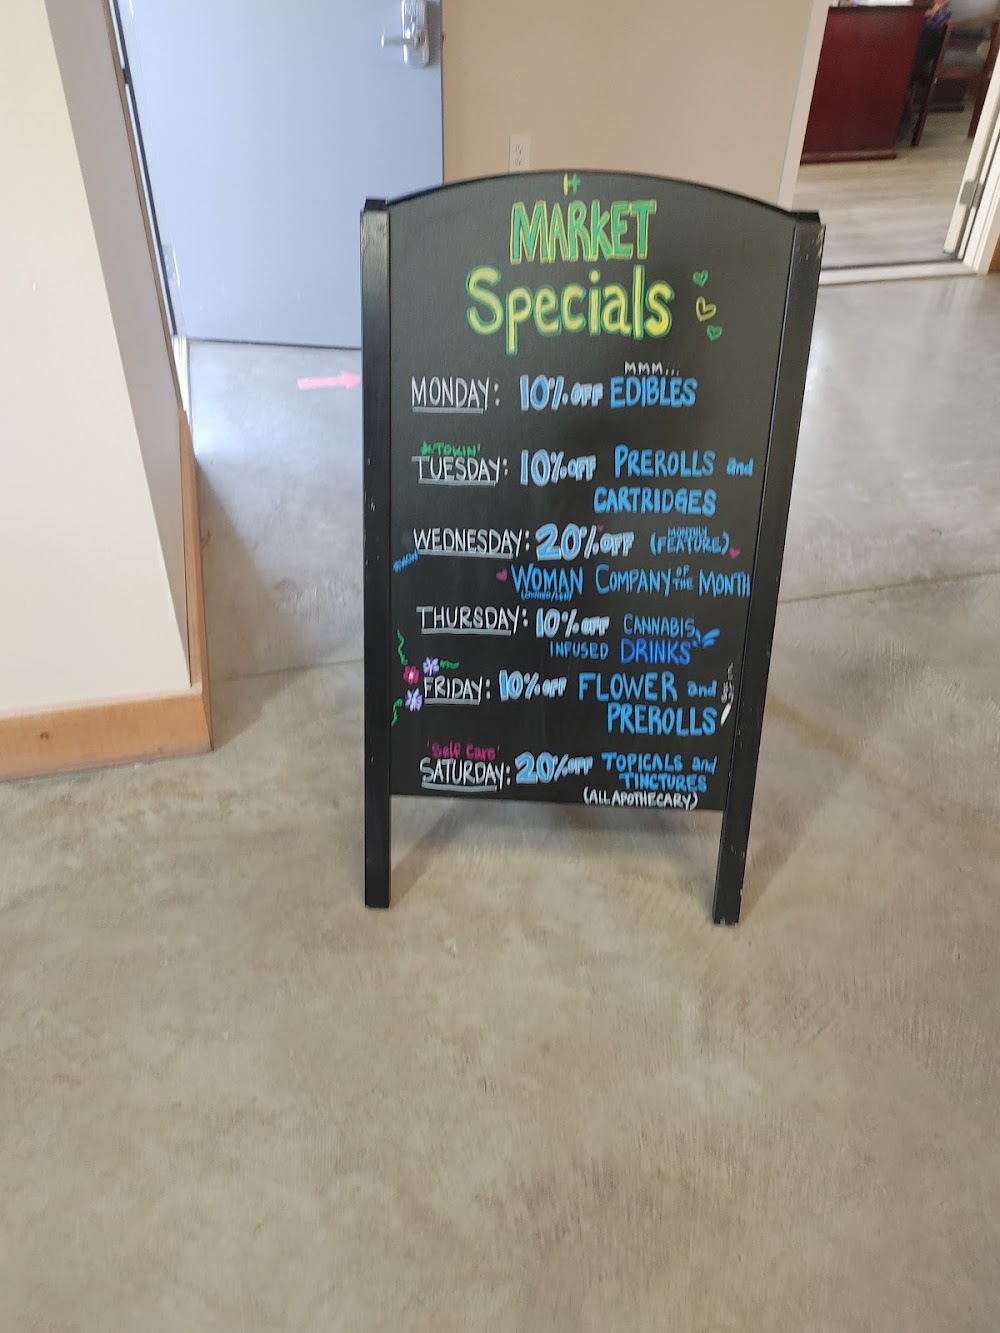 H
MARKET
Specials
MMM...
MONDAY: 10% OFF EDIBLES
TOKIN'
TUESDAY: 10% OFF PREROLLS and
CARTRIDGES
WEDNESDAY: 20% OFF (MONTHLY FEATURE)
WOMAN COMPANY OF THE MONTH
THURSDAY: 10% OFF CANNABIS
INFUSED DRINKS
FRIDAY: 10% OFF FLOWER and
PREROLLS
'Self Care'
SATURDAY: 20% OFF TOPICALS and
TINCTURES
(ALL APOTHECARY)